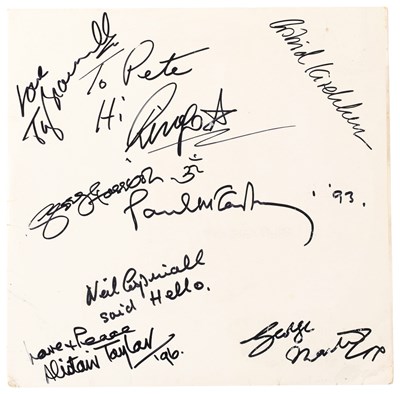 love
To Pete
Hi
Ringo
Astrid Kirchherr
George Harrison
Paul McCartney
'93.
Neil Aspinall
said Hello.
Love & Peace
Alistair Taylor
'96.
George
Martin